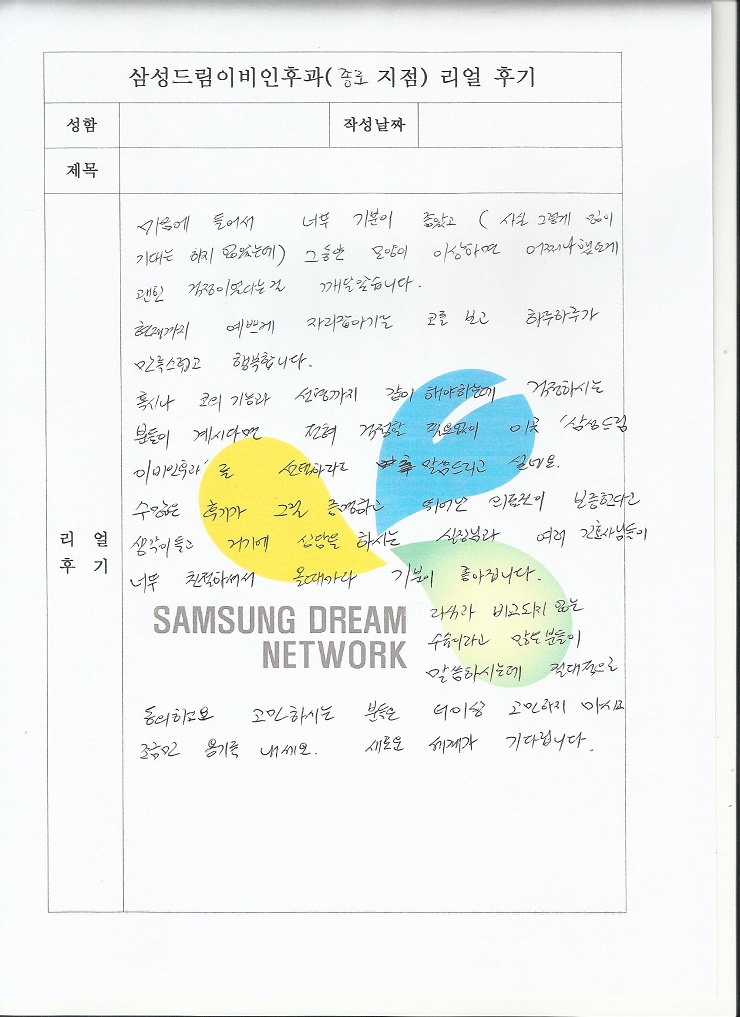 삼성드림이비인후과( 종로 지점) 리얼 후기
성함
작성날짜
제목
리 얼
후 기
마음에 들어서 너무 기분이 좋았고 ( 사실 그렇게 많이
기대는 하지 않았는데) 그동안 모양이 이상하면 어쩌나했던게
괜한 걱정이었다는걸 깨달았습니다.
현재까지 예쁘게 자리잡아가는 코를 보고 하루하루가
만족스럽고 행복합니다.
혹시나 코의 기능과 성형까지 같이 해야하는게 걱정하시는
분들이 계시다면 전혀 걱정할 필요없이 이곳 '삼성드림
이비인후과'를 선택하라고 말씀드리고 싶네요.
수많은 후기가 그걸 증명하고 뛰어난 의료진이 보증한다고
생각이들고 거기에 상담을 하시는 실장님과 여러 간호사님들이
너무 친절하셔서 올때마다 기분이 좋아집니다.
SAMSUNG DREAM
NETWORK
비교되지 않는
수술이라고 많은분들이
말씀하시는데 절대적으로
동의하고요 고민하시는 분들은 더이상 고민하지 마시고
용기를 내세요. 새로운 세계가 기다립니다.